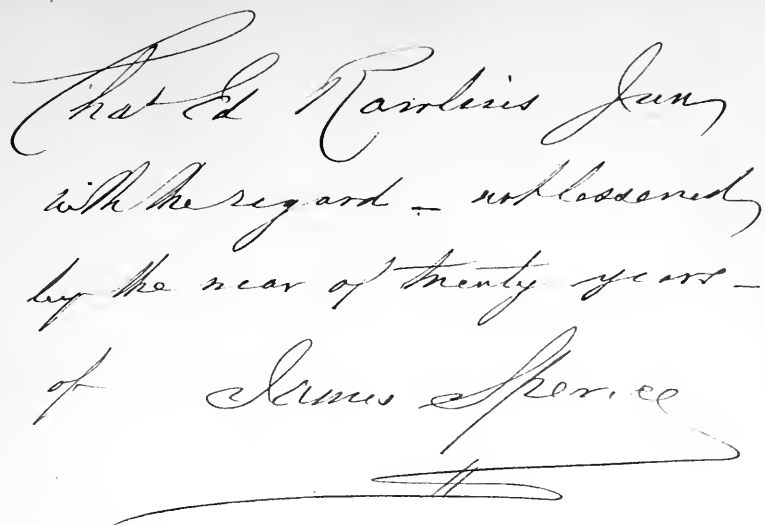 Chas Ed Rawlins Jun
with the regard - not lessened
by the wear of twenty years -
of James Spence